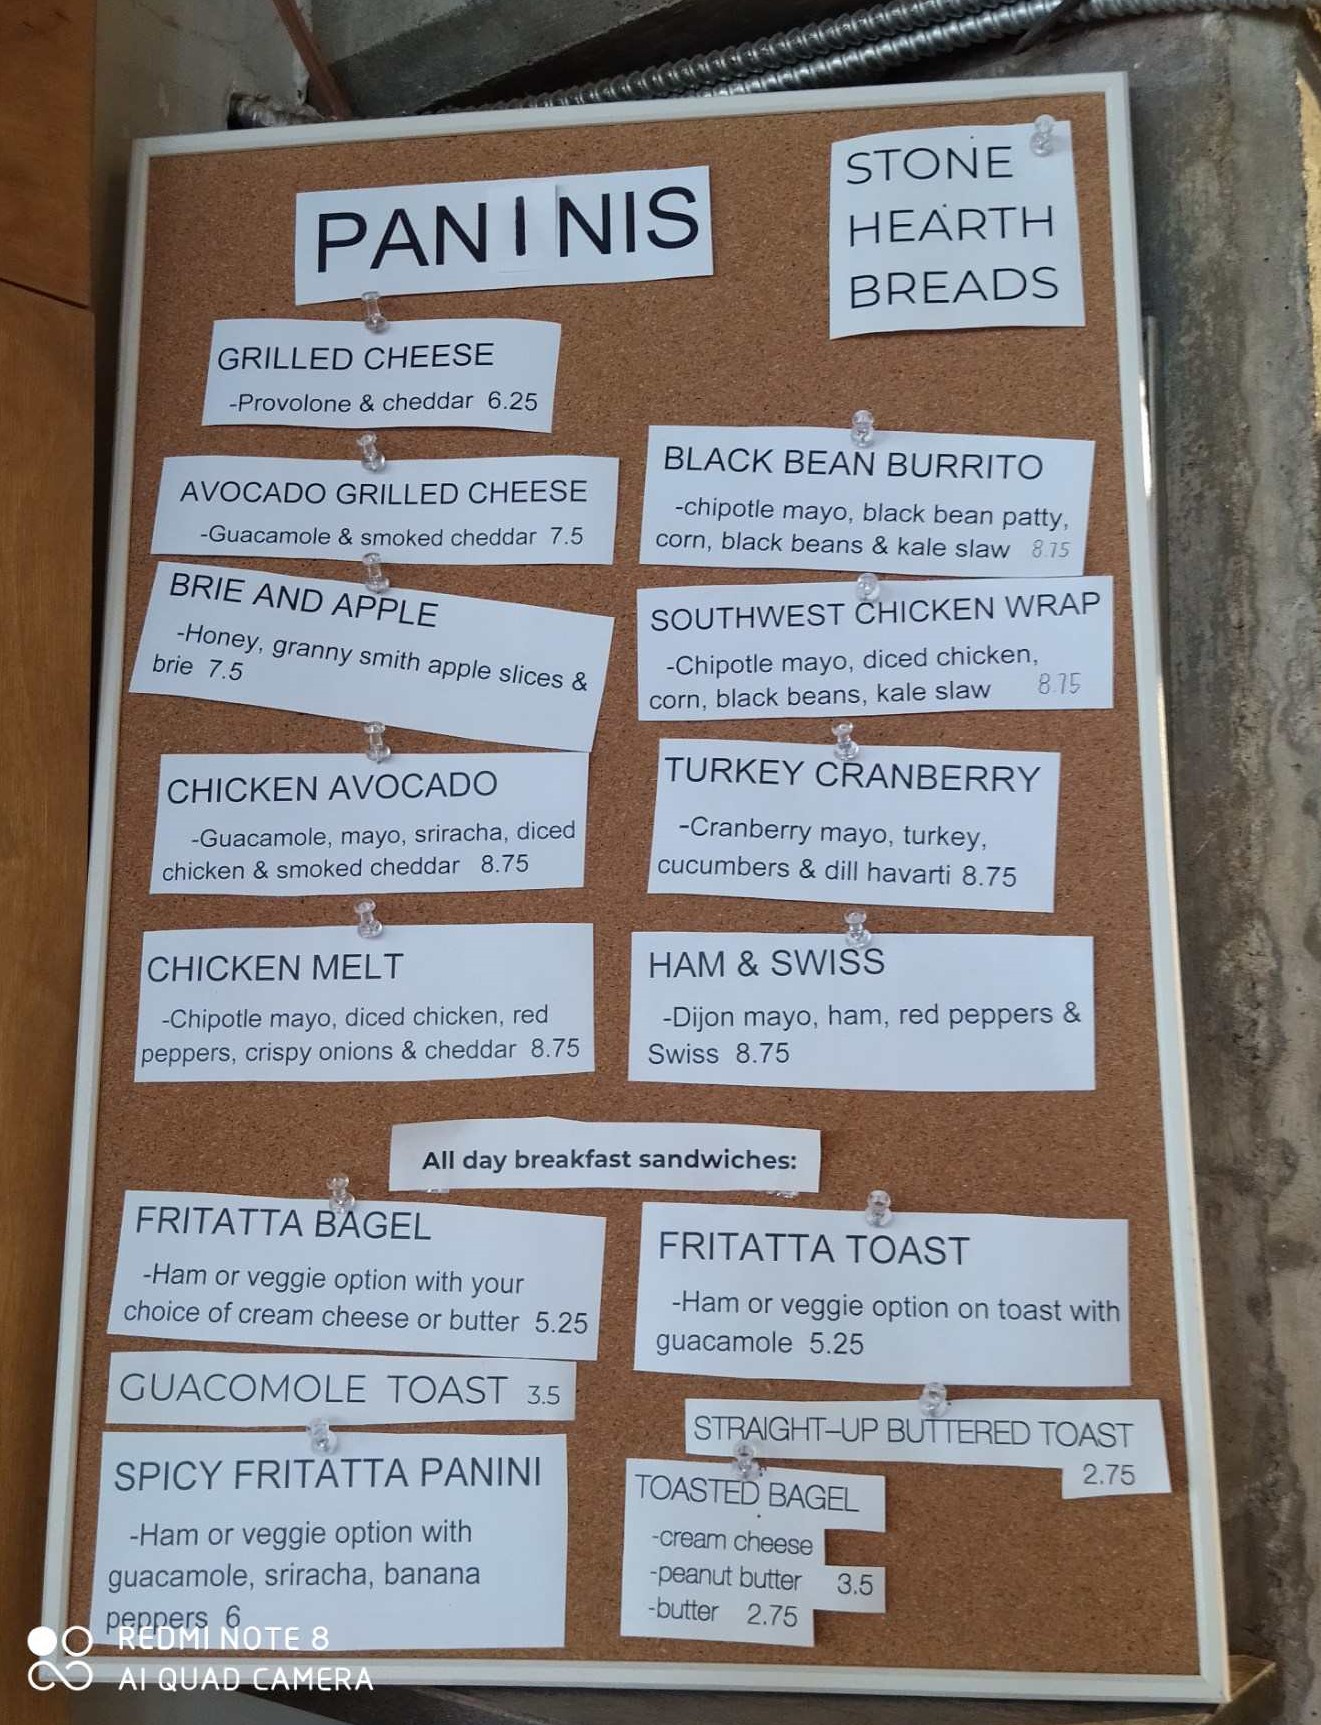 PANINIS
STONE
HEARTH
BREADS
GRILLED CHEESE
-Provolone & cheddar 6.25
AVOCADO GRILLED CHEESE
-Guacamole & smoked cheddar 7.5
BRIE AND APPLE
-Honey, granny smith apple slices &
brie 7.5
CHICKEN AVOCADO
-Guacamole, mayo, sriracha, diced
chicken & smoked cheddar 8.75
CHICKEN MELT
-Chipotle mayo, diced chicken, red
peppers, crispy onions & cheddar 8.75
BLACK BEAN BURRITO
-chipotle mayo, black bean patty,
corn, black beans & kale slaw 8.75
SOUTHWEST CHICKEN WRAP
-Chipotle mayo, diced chicken,
corn, black beans, kale slaw 8.75
TURKEY CRANBERRY
-Cranberry mayo, turkey,
cucumbers & dill havarti 8.75
HAM & SWISS
-Dijon mayo, ham, red peppers &
Swiss 8.75
All day breakfast sandwiches:
FRITATTA BAGEL
-Ham or veggie option with your
choice of cream cheese or butter 5.25
GUACOMOLE TOAST 3.5
SPICY FRITATTA PANINI
-Ham or veggie option with
guacamole, sriracha, banana
peppers 6
FRITATTA TOAST
-Ham or veggie option on toast with
guacamole 5.25
STRAIGHT-UP BUTTERED TOAST
2.75
TOASTED BAGEL
-cream cheese
-peanut butter 3.5
-butter 2.75
REDMI NOTE 8
AI QUAD CAMERA